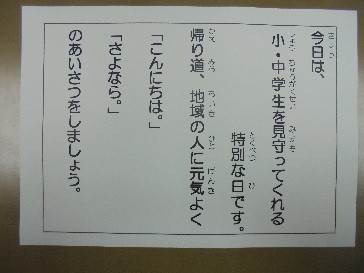 今日は、
小・中学生を見守ってくれる
特別な日です。
帰り道、地域の人に元気よく
「こんにちは。」
「さよなら。」
のあいさつをしましょう。